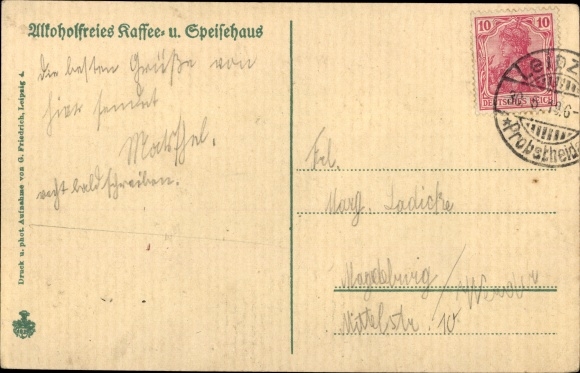 Alkoholfreies Kaffee- u. Speisehaus
Die besten Grüße von
hier sendet
recht bald schreiben.
Druck u. phot. Aufnahme von G. Friedrich, Leipzig 4.
10 10
DEUTSCHES REICH
Leipz
*Probstheida
Frl.
Marg. Ladicke
Magdeburg/
Mittelstr. 10